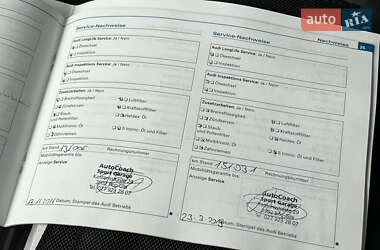 auto RIA
Service-Nachweise
Audi LongLife Service: Ja / Nein
Ölwechsel
Inspektion
Audi Inspektions Service: Ja / Nein
Ölwechsel
Inspektion
Zusatzarbeiten: Ja / Nein
Bremsflüssigkeit
Luftfilter
Zündkerzen
Kraftstofffilter
Staub- und Pollenfilter
Haldex: Öl
Multitronic: Öl
S tronic: Öl und Filter
Zahnriemen
km Stand
Rechnungsnummer
Mobilitätsgarantie bis
Anzeige Service
AutoCoach
Sport Garage
Datum, Stempel des Audi Betriebs
Service-Nachweise
Nachweise
Audi LongLife Service: Ja / Nein
Ölwechsel
Inspektion
Audi Inspektions Service: Ja / Nein
Ölwechsel
Inspektion
Zusatzarbeiten: Ja / Nein
Bremsflüssigkeit
Luftfilter
Zündkerzen
Kraftstofffilter
Staub- und Pollenfilter
Haldex: Öl
Multitronic: Öl
S tronic: Öl und Filter
Zahnriemen
km Stand 151031
Rechnungsnummer
Mobilitätsgarantie bis
Anzeige Service
AutoCoach
Sport Garage
Datum, Stempel des Audi Betriebs